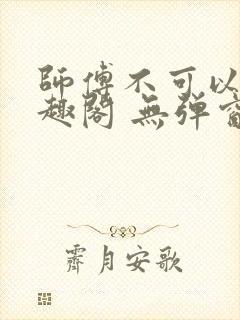 師傅不可以
趣閣 無彈
霽月安歌